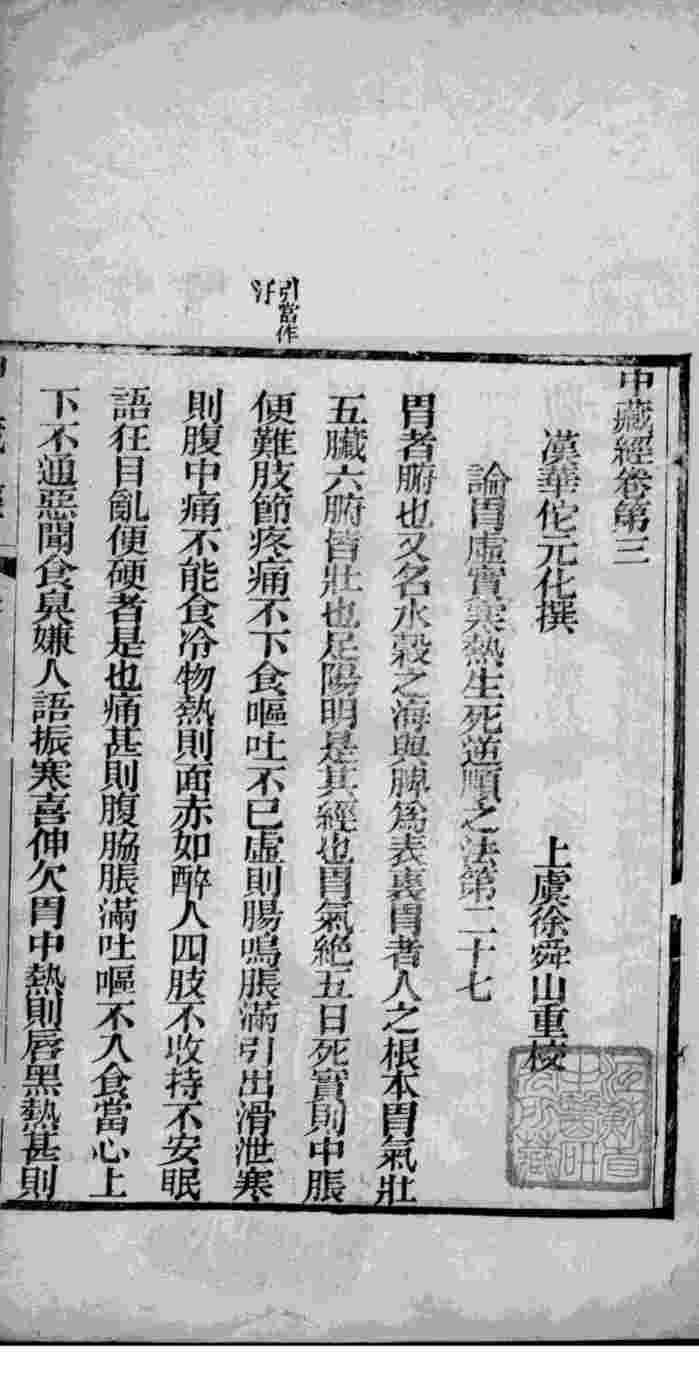 引當作
汙
中藏經卷第三
漢華佗元化撰　上虞徐舜山重校
論胃虛實寒熱生死逆順之法第二十七
胃者腑也又名水穀之海與脾爲表裏胃者人之根本胃氣壯
五臟六腑皆壯也足陽明是其經也胃氣絕五日死實則中脹
便難肢節疼痛不下食嘔吐不已虛則腸鳴脹滿引出滑泄寒
則腹中痛不能食冷物熱則面赤如醉人四肢不收持不安眠
語狂目亂便硬者是也痛甚則腹脇脹滿吐嘔不入食當心上
下不通惡聞食臭嫌人語振寒喜伸欠胃中熱則唇黑熱甚則